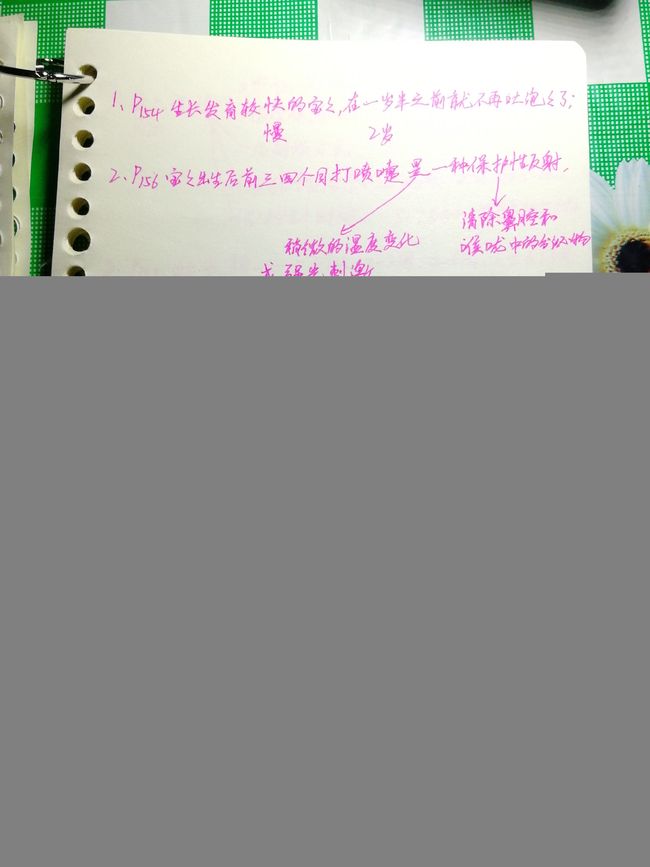 1、P154 生长发育较快的宝宝,在一岁半之前就不再吐泡泡了;
慢 2岁
2、P156 宝宝出生后前三四个月打喷嚏是一种保护性反射.
清除鼻腔和
稍微的温度变化
喉咙中的分泌物
或强光刺激